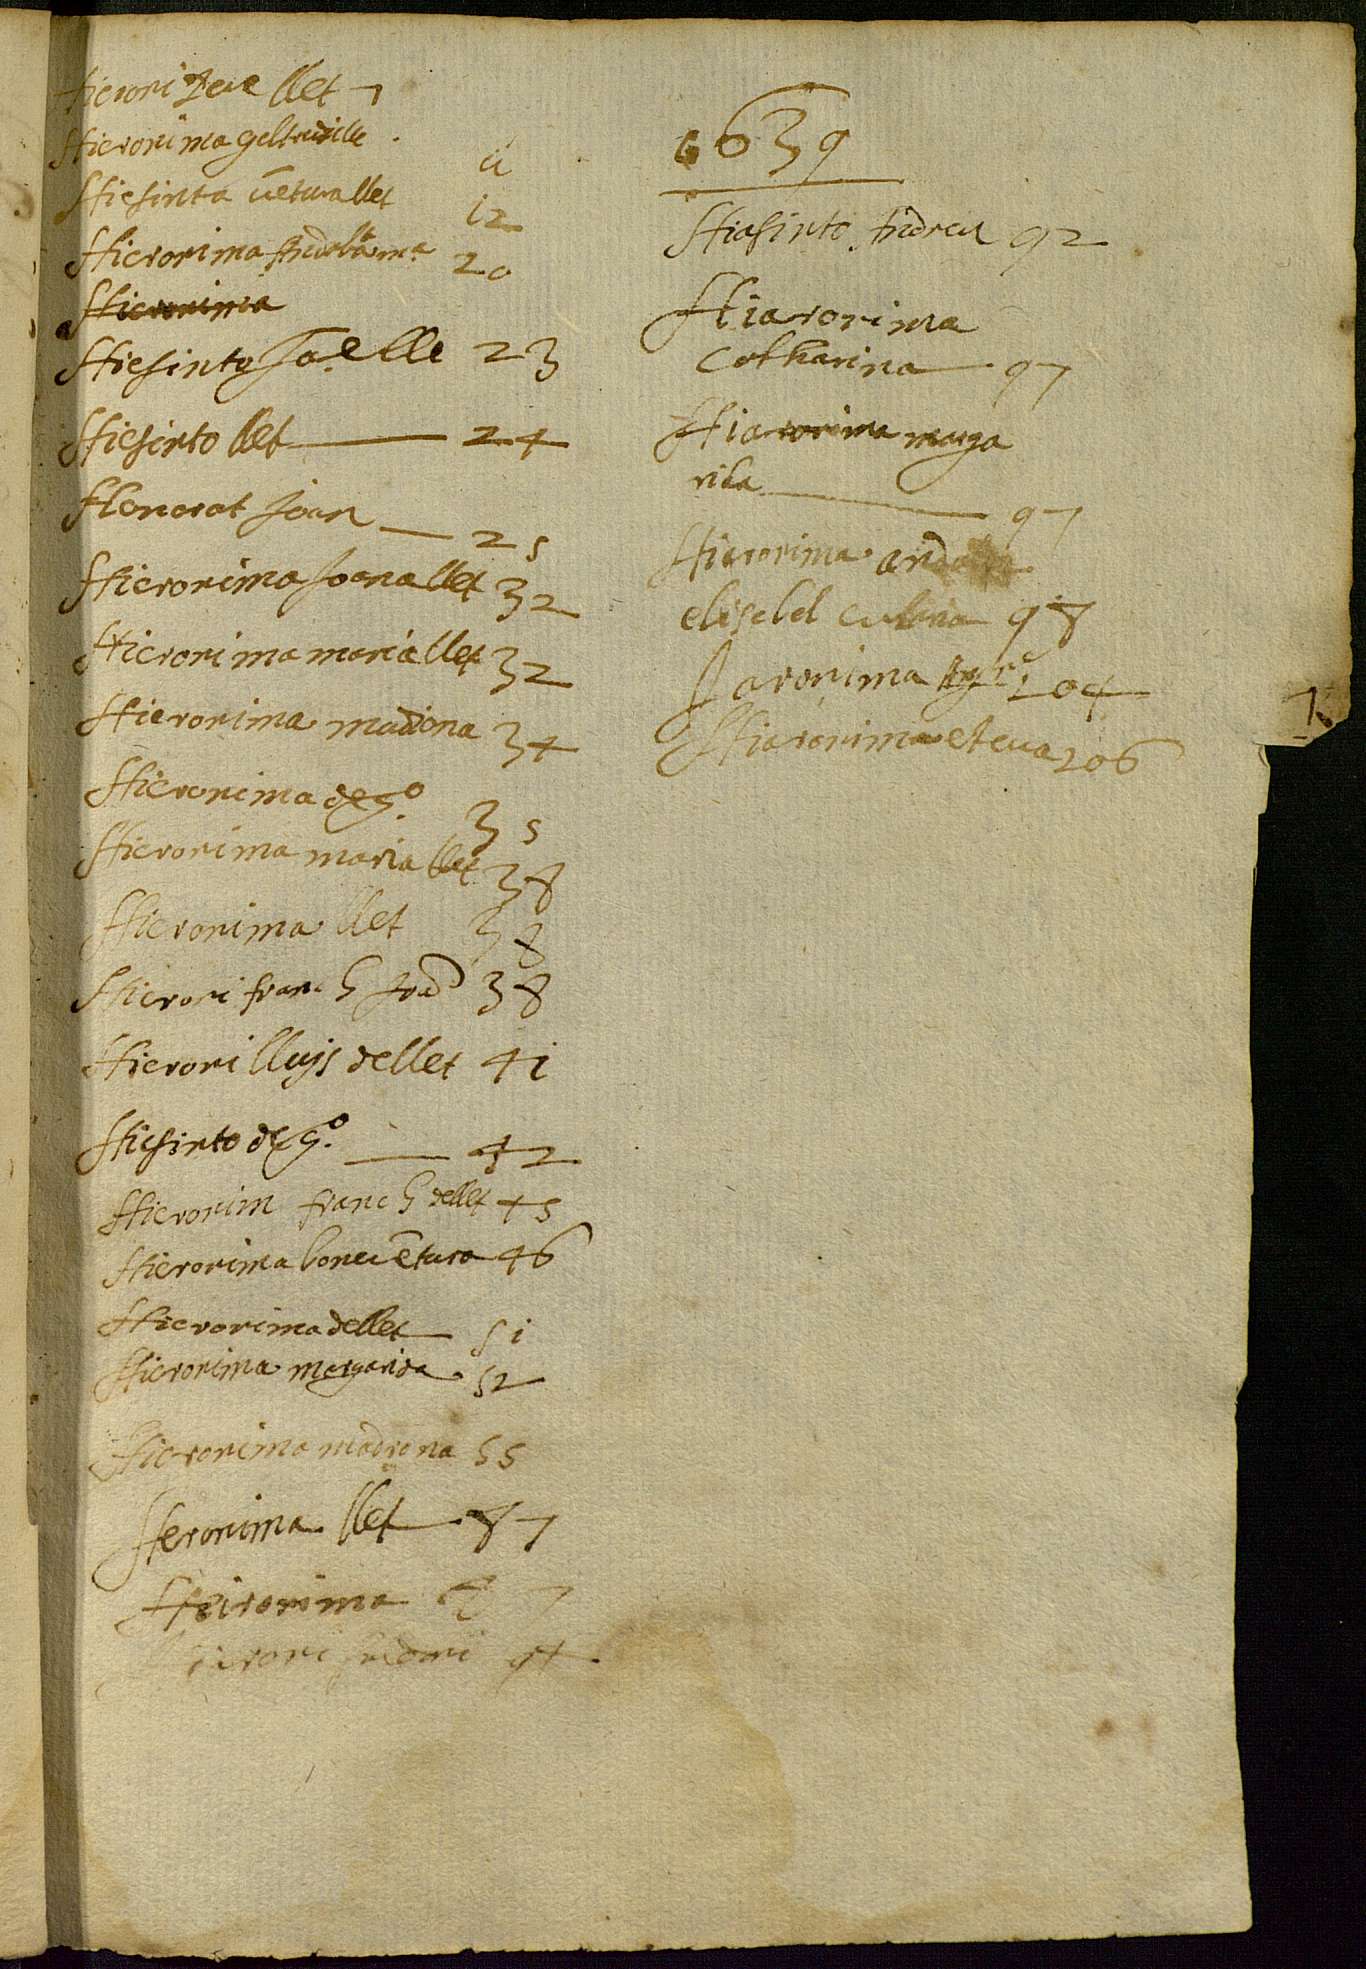 Hieroni Pere llet 7
Hieronima geltrudis lle
ii
Hiesinta vētura llet 12
Hieronima 20
Hieronima
Hiesinto Joā e lle 23
Hiesinto llet 24
Honorat Joan 25
Hieronima Joana llet 32
Hieronima maria llet 32
Hieronima madrona 34
Hieronima de Gº 35
Hieronima maria llet 38
Hieronima llet 38
Hieroni franch Joā 38
Hieroni lluys de llet 4i
Hiesinto de Gº. 42
Hieronim franch de llet 45
Hieronima bonevētura 46
Hieronima de llet 5i
Hieronima margarida 52
Hieronima madrona 55
Heronima llet 87
Heironima 7
Hieroni 94
1639
Hiasinto Andreu 92
Hiaronima
Catharina 97
Hiaronima marga
rida 97
Hieronima
elisabel 98
Jaronima 104
Hiaronima e teua 106
1